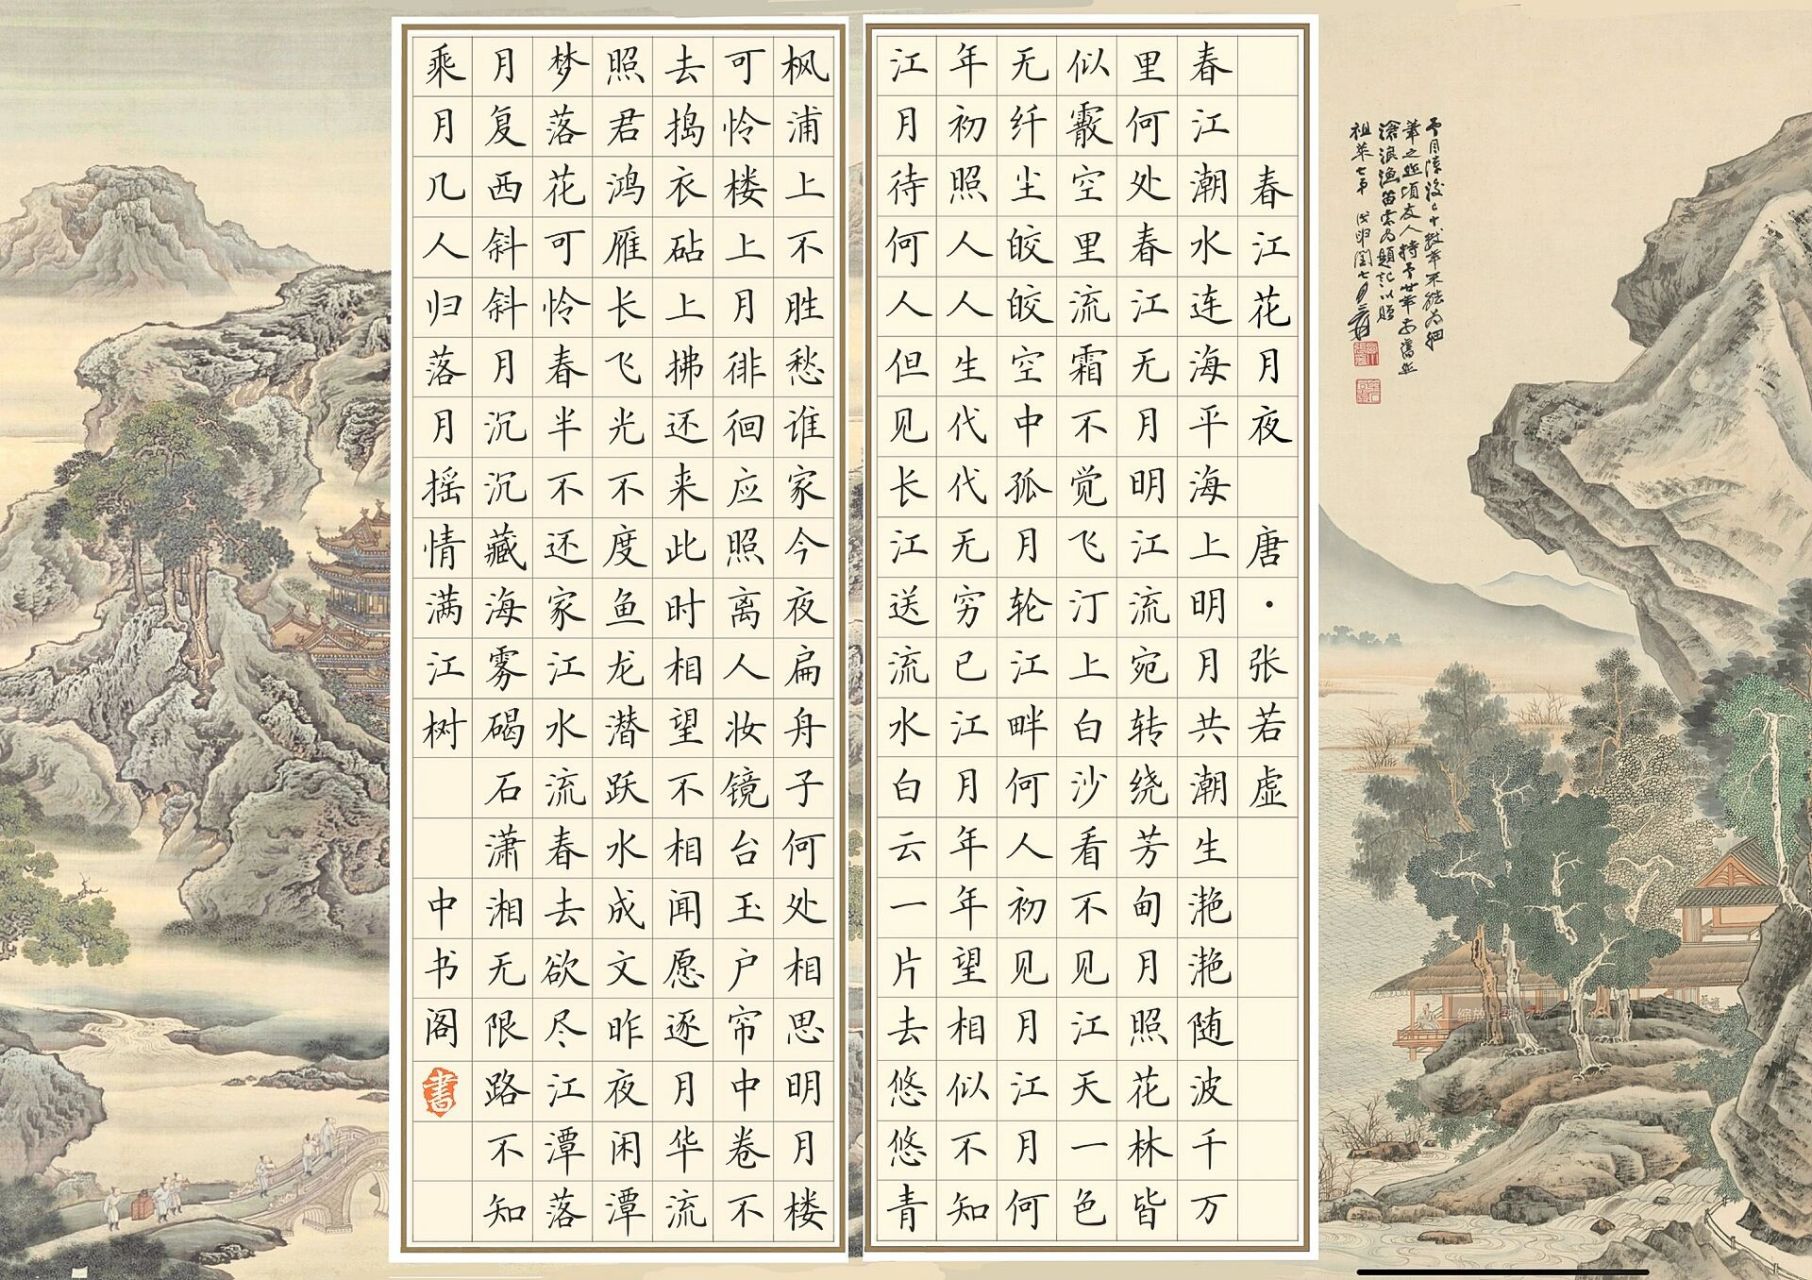 予目障後
年不能為細
筆之
頃友人持予廿年前舊
滄浪漁笛索為題記以貽
祖萊七弟 戊申閏七月 爰
春江花月夜 唐·张若虚
春江潮水连海平海上明月共潮生滟滟随波千万
里何处春江无月明江流宛转绕芳甸月照花林皆
似霰空里流霜不觉飞汀上白沙看不见江天一色
无纤尘皎皎空中孤月轮江畔何人初见月江月何
年初照人人生代代无穷已江月年年望相似不知
江月待何人但见长江送流水白云一片去悠悠青
枫浦上不胜愁谁家今夜扁舟子何处相思明月楼
可怜楼上月徘徊应照离人妆镜台玉户帘中卷不
去捣衣砧上拂还来此时相望不相闻愿逐月华流
照君鸿雁长飞光不度鱼龙潜跃水成文昨夜闲潭
梦落花可怜春半不还家江水流春去欲尽江潭落
月复西斜斜月沉沉藏海雾碣石潇湘无限路不知
乘月几人归落月摇情满江树 中书阁 書